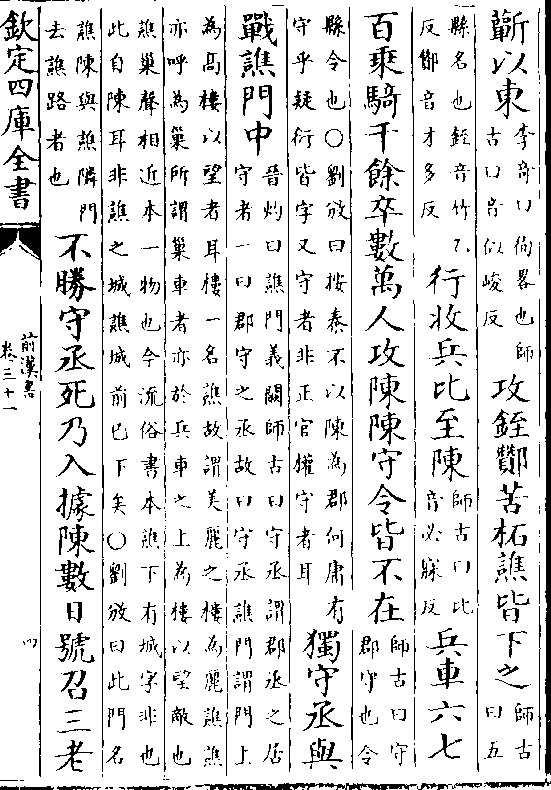 蘄以東李奇曰徇畧也師古曰音似峻反攻銍酇苦柘譙皆下之師古曰五
縣名也銍音竹乙反酇音才多反行收兵比至陳師古曰比音必寐反兵車六七
百乘騎千餘卒數萬人攻陳陳守令皆不在師古曰守郡守也令
縣令也○劉攽曰按秦不以陳為郡何庸有守乎疑衍皆字又守者非正官權守者耳獨守丞與
戰譙門中晉灼曰譙門義闕師古曰守丞謂郡丞之居守者一曰郡守之丞故曰守丞譙門謂門上
為高樓以望者耳樓一名譙故謂美麗之樓為麗譙譙亦呼為巢所謂巢車者亦於兵車之上為樓以望敵也
譙巢聲相近本一物也今流俗書本譙下有城字非也此自陳耳非譙之城譙城前已下矣○劉攽曰此門名
譙陳與譙隣門去譙路者也不勝守丞死乃入據陳數日號召三老
欽定四庫全書
前漢書
卷三十一
四